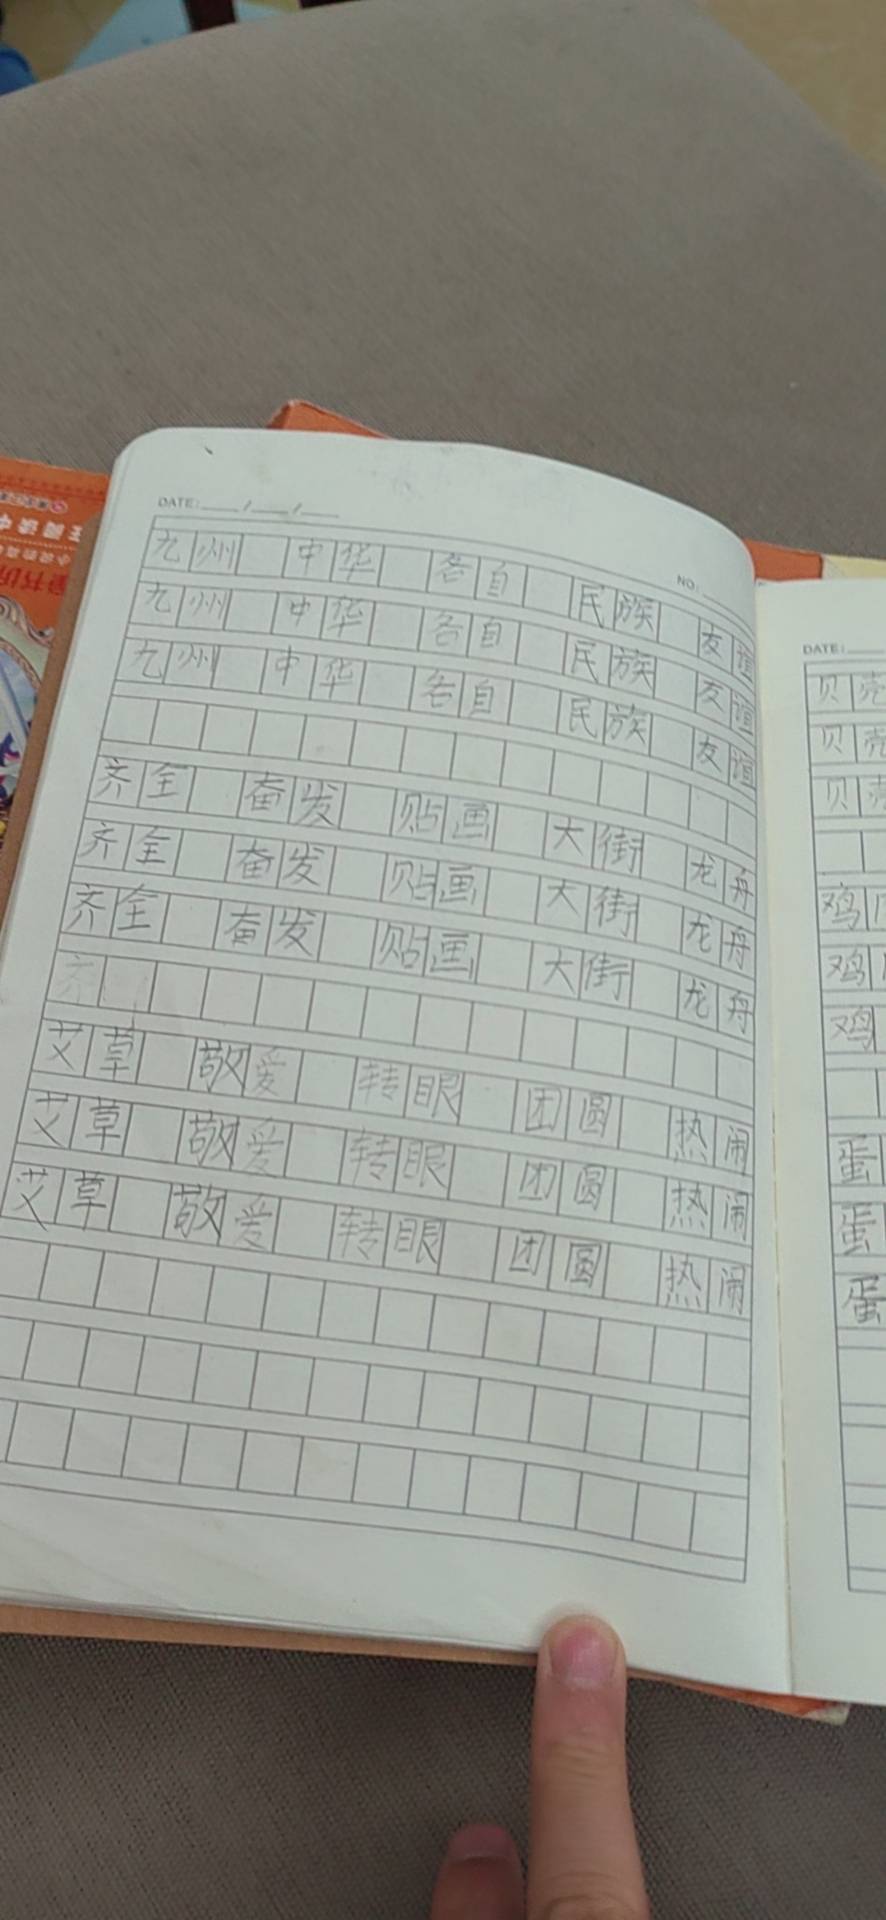 DATE: / /
NO:
九州 中华 各自 民族 友谊
九州 中华 各自 民族 友谊
九州 中华 各自 民族 友谊
齐全 奋发 贴画 大街 龙舟
齐全 奋发 贴画 大街 龙舟
齐全 奋发 贴画 大街 龙舟
齐
艾草 敬爱 转眼 团圆 热闹
艾草 敬爱 转眼 团圆 热闹
艾草 敬爱 转眼 团圆 热闹
DATE:
贝壳
贝壳
贝壳
鸡
鸡
鸡
蛋
蛋
蛋